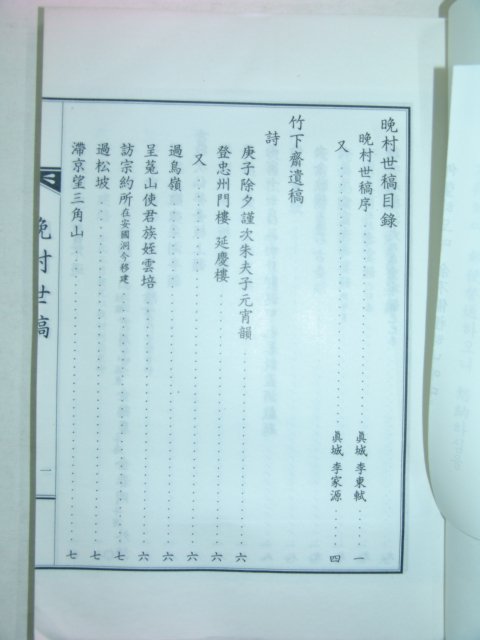 晚村世稿目錄
晚村世稿序 眞城 李東軾 一
又 眞城 李家源 四
竹下齋遺稿
詩
庚子除夕謹次朱夫子元宵韻 六
登忠州門樓 延慶樓 六
又 六
過鳥嶺 六
呈菟山使君族姪雲培 六
訪宗約所 在安國洞今移建 七
過松坡 七
滯京望三角山 七
晚村世稿
一